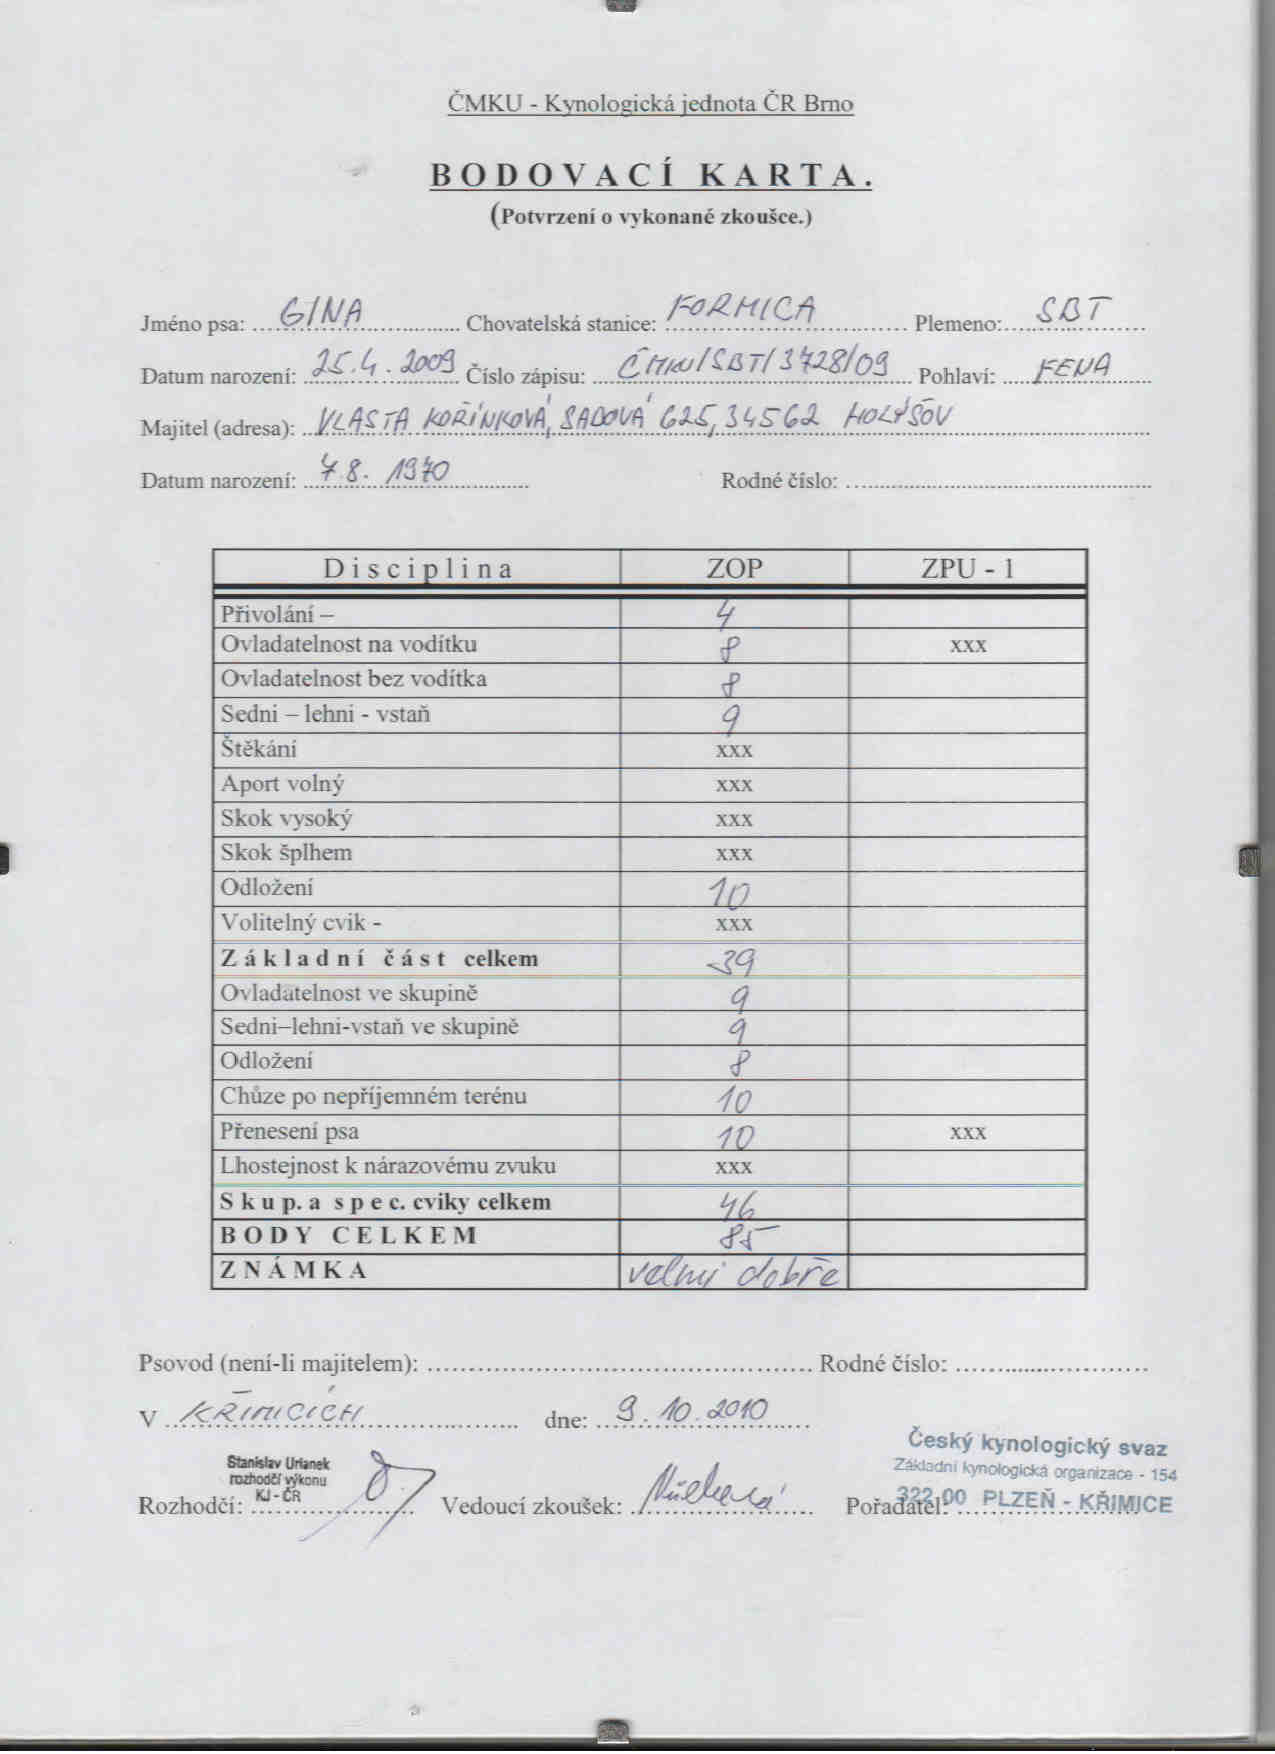 ČMKU - Kynologická jednota ČR Brno
BODOVACÍ KARTA.
(Potvrzení o vykonané zkoušce.)
Jméno psa: GINA Chovatelská stanice: FORMICA Plemeno: SBT
Datum narození: 25.4.2009 Číslo zápisu: ČMKU/SBT/3728/09 Pohlaví: FENA
Majitel (adresa): VLASTA KOŘÍNKOVÁ, SADOVÁ 625, 34562 HOLÝŠOV
Datum narození: 7.8. 1970 Rodné číslo:
Disciplina ZOP ZPU - 1
Přivolání – 4
Ovladatelnost na vodítku 8 xxx
Ovladatelnost bez vodítka 8
Sedni – lehni - vstaň 9
Štěkání xxx
Aport volný xxx
Skok vysoký xxx
Skok šplhem xxx
Odložení 10
Volitelný cvik - xxx
Základní část celkem 39
Ovladatelnost ve skupině 9
Sedni–lehni-vstaň ve skupině 9
Odložení 8
Chůze po nepříjemném terénu 10
Přenesení psa 10 xxx
Lhostejnost k nárazovému zvuku xxx
Skup. a spec. cviky celkem 46
BODY CELKEM 85
ZNÁMKA velmi dobře
Psovod (není-li majitelem): Rodné číslo:
V KŘIMICÍCH dne: 9.10.2010
Stanislav Urianek
rozhodčí výkonu
KJ - ČR
Český kynologický svaz
Základní kynologická organizace - 154
322 00 PLZEŇ - KŘIMICE
Rozhodčí: Vedoucí zkoušek: Pořadatel: